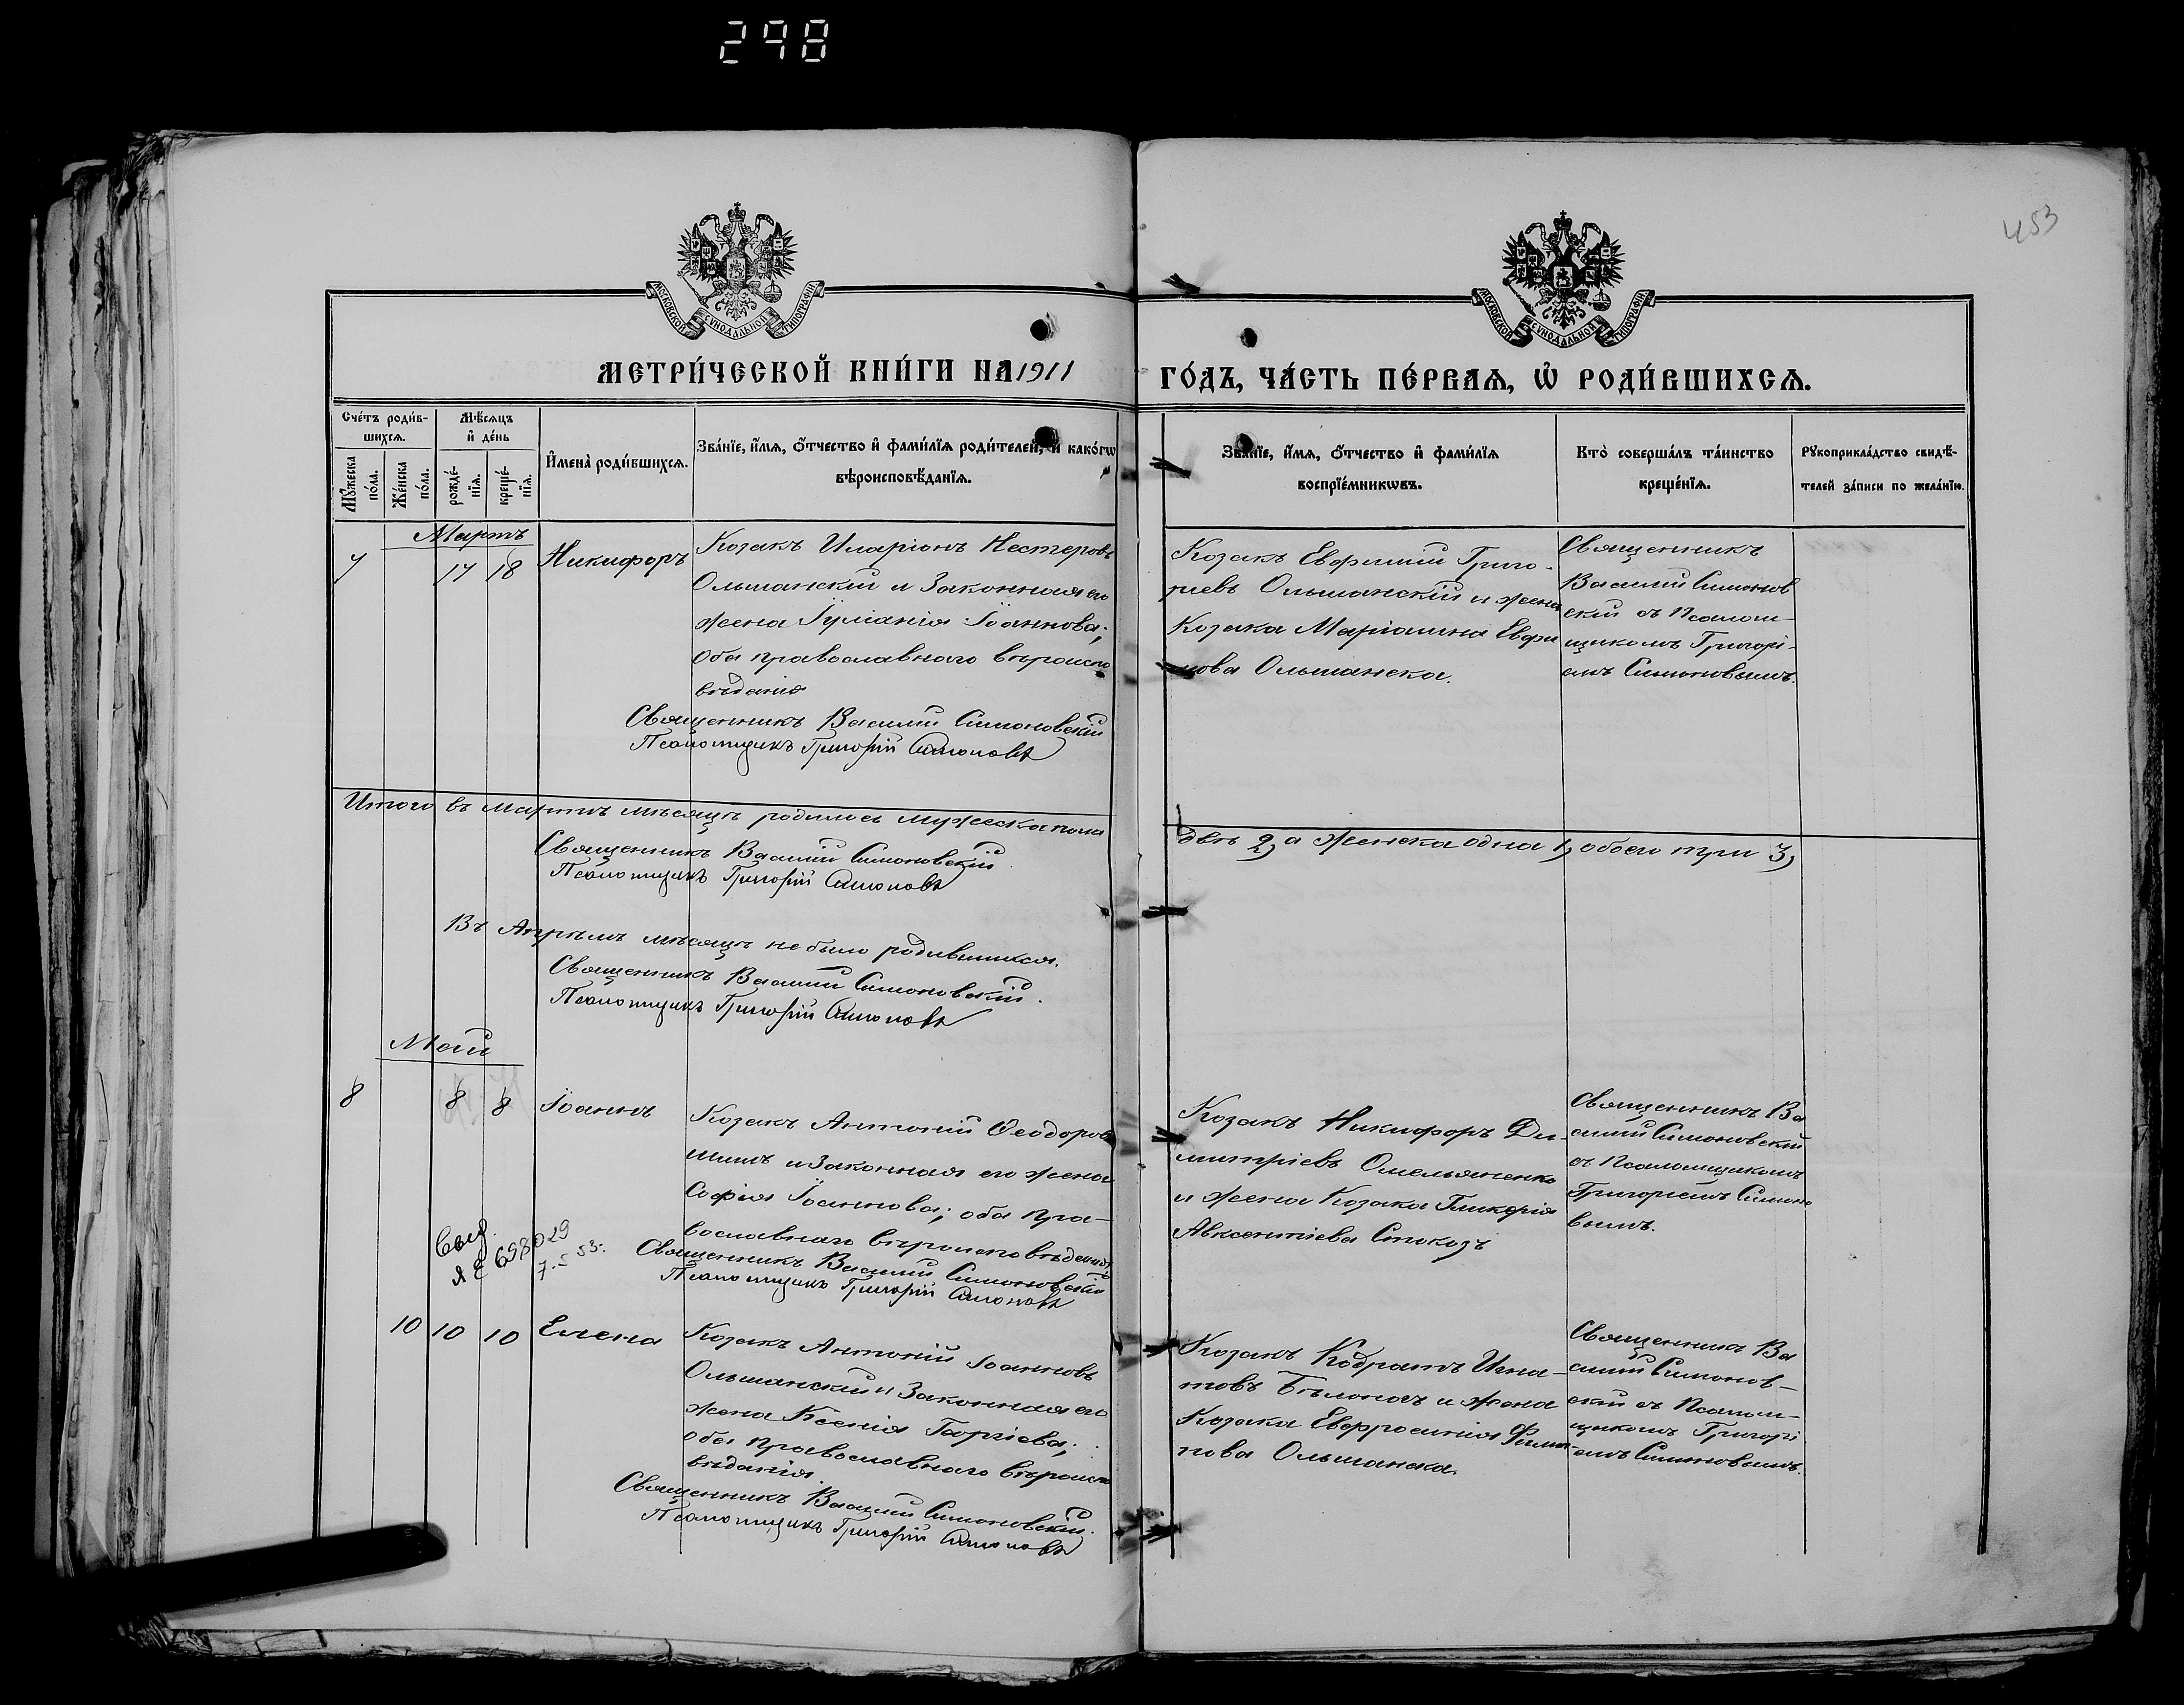 298
453
МОСКОВСКОЙ СѴНОДАЛЬНОЙ ТИПОГРАФІИ
МОСКОВСКОЙ СѴНОДАЛЬНОЙ ТИПОГРАФІИ
МЕТРИ́ЧЕСКОЙ КНИ́ГИ НА 1911 ГО́ДЪ, ЧА́СТЬ ПЕ́РВАѦ, Ѽ РОДИ́ВШИХСѦ.
Сче́тъ роди́в-
шихсѧ.
Мꙋ́жеска
по́ла.
Же́нска
по́ла.
Мѣ́сѧцъ
и҆ де́нь
рожде́-
нїѧ.
креще́-
нїѧ.
И҆мена̀ роди́вшихсѧ.
Зва́нїе, и҆́мѧ, ѻ҆́тчество и҆ фами́лїѧ роди́телей, и҆ како́гѡ
вѣроисповѣ́данїѧ.
Зва́нїе, и҆́мѧ, ѻ҆́тчество и҆ фами́лїѧ
воспрїе́мникѡвъ.
Кто̀ соверша́лъ та́инство
креще́нїѧ.
Рꙋкоприкла́дство свидѣ́-
телей за́писи по жела́нїю.
Мартъ
7 17 18 Никифоръ
Козакъ Иларіонъ Нестеровъ
Ольшанскій и Законная его
жена Іуліанія Іоаннова;
Оба православнаго вѣроиспо
вѣданія
Священникъ Василій Симоновскій
Псаломщикъ Григорій Симоновъ
Козакъ Евфимій Григо-
ріевъ Ольшанскій и жена
Козака Маріамна Евфи
мова Ольшанска.
Священникъ
Василій Симонов
скій съ Псалом-
щикомъ Григорі-
емъ Симоновымъ.
Итого въ Мартѣ мѣсяцѣ родилось мужеска пола
двѣ 2, а Женска одна 1, обоего три 3,
Священникъ Василій Симоновскій.
Псаломщикъ Григорій Симоновъ
Въ Апрѣлѣ мѣсяцѣ не было родившихся.
Священникъ Василій Симоновскій.
Псаломщикъ Григорій Симоновъ
Май
8 8 8 Іоаннъ
Козакъ Антоній Ѳеодоровъ
и Законная его жена
Софія Іоаннова; оба пра-
вославнаго вѣроисповѣданія,
Священникъ Василій Симоновскій
Псаломщикъ Григорій Симоновъ
698029
Козакъ Никифоръ Ди-
митріевъ Омельяненко
и жена Козака Гликерія
Авксентіева Стокозъ
Священникъ Ва
силій Симоновскій
съ Псаломщикомъ
Григоріемъ Симоно
вымъ.
10 10 10 Елена
Козакъ Антоній Іоанновъ
Ольшанскій и Законная его
жена Ксенія Георгіева;
оба православнаго вѣроиспо
вѣданія.
Священникъ Василій Симоновскій.
Псаломщикъ Григорій Симоновъ
Козакъ Кодратъ Игна-
товъ и жена
Козака Евфросинія Филип-
пова Ольшанска.
Священникъ Ва
силій Симонов-
скій съ Псалом-
щикомъ Григорі
емъ Симоновымъ.